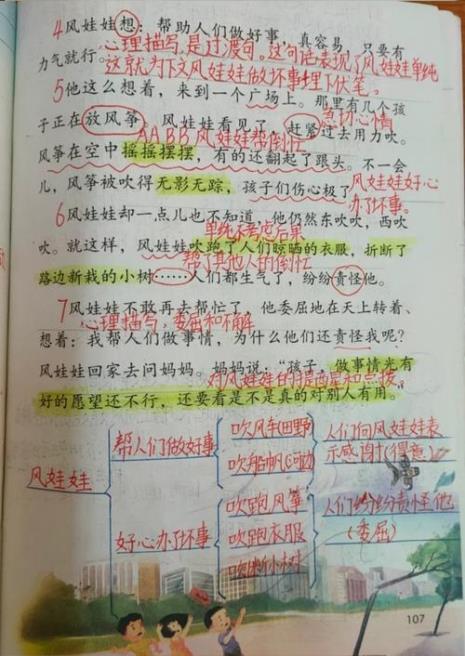 4风娃娃想：帮助人们做好事，真容易，只要有
心理描写，是过渡句。这句话表现了风娃娃单纯
力气就行。
这就为下文风娃娃做坏事埋下伏笔。
5他这么想着，来到一个广场上。那里有几个孩
急切心情
子正在放风筝，风娃娃看见了，赶紧过去用力吹。
AABB 风娃娃帮倒忙
风筝在空中摇摇摆摆，有的还翻起了跟头。不一会
儿，风筝被吹得无影无踪，孩子们伤心极了。
风娃娃好心
办了坏事。
6风娃娃却一点儿也不知道，他仍然东吹吹，西吹
单纯不考虑后果
吹。就这样，风娃娃吹跑了人们晾晒的衣服，折断了
帮了其他人的倒忙
路边新栽的小树……人们都生气了，纷纷责怪他。
7风娃娃不敢再去帮忙了，他委屈地在天上转着、
心理描写，委屈和不解
想着：我帮人们做事情，为什么他们还责怪我呢？
风娃娃回家去问妈妈。妈妈说：“孩子，做事情光有
对风娃娃的提醒和点拨。
好的愿望还不行，还要看是不是真的对别人有用。”
风娃娃
帮人们做好事
吹风车(田野)
吹船帆(河边)
人们向风娃娃表
示感谢(得意)
好心办了坏事
吹跑风筝
吹跑衣服
吹断小树
人们纷纷责怪他
(委屈)
107